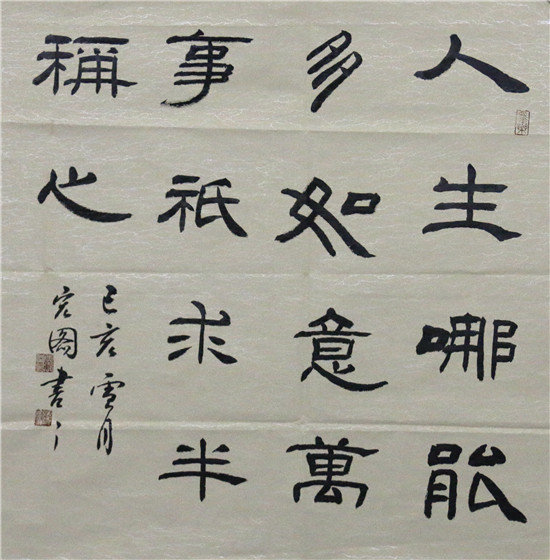 人生哪能
多如意萬
事祇求半
稱心
己亥雪月
宏圖書